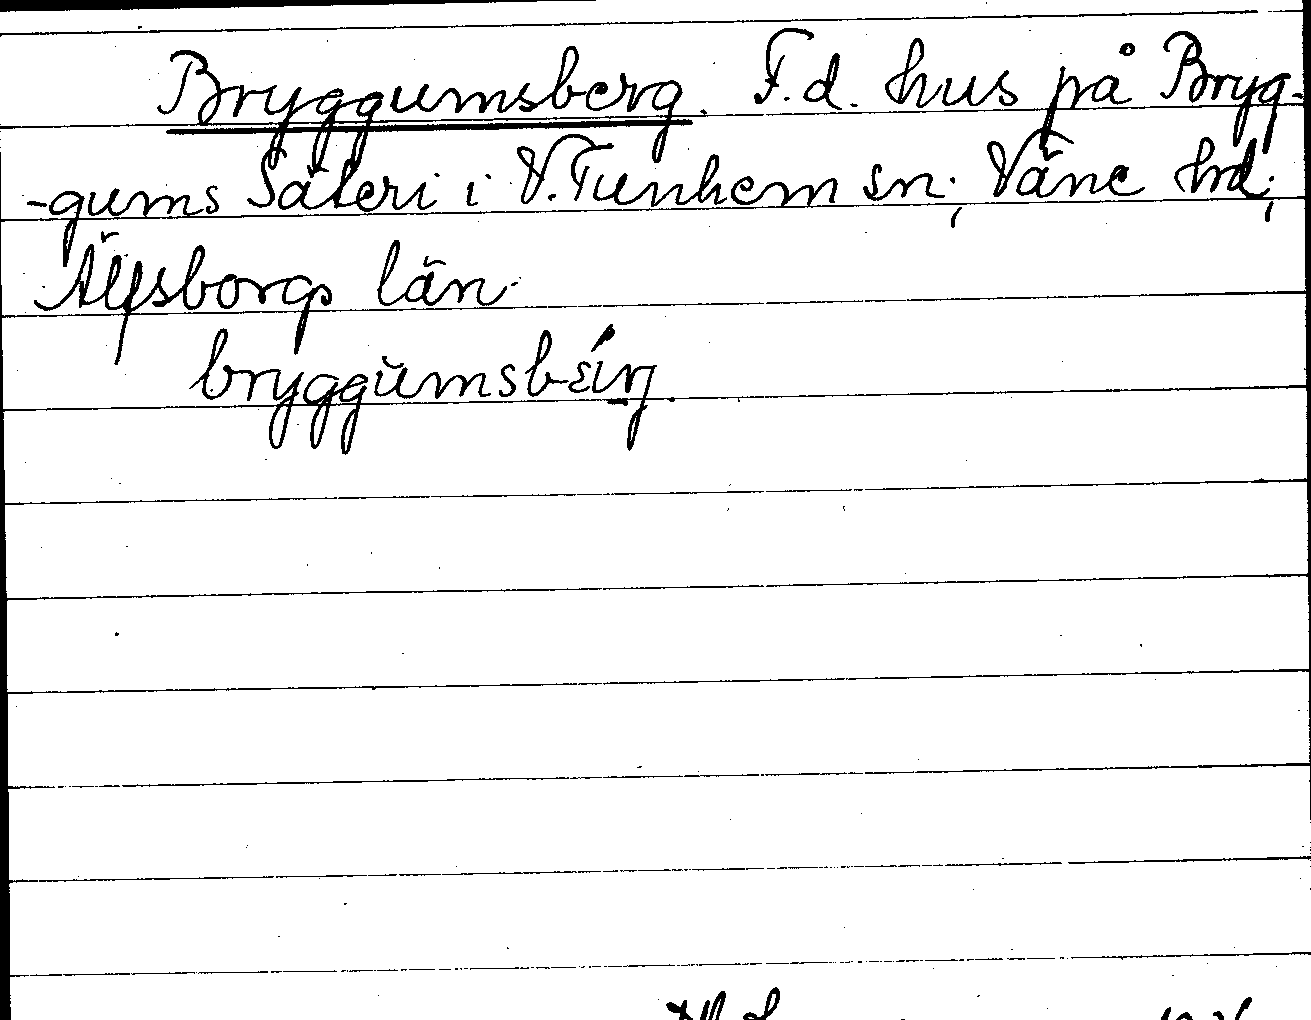 Bryggumsberg. F.d. hus på Bryg-
-gums Säteri i V.Tunhem sn; Väne hd;
Älfsborgs län.